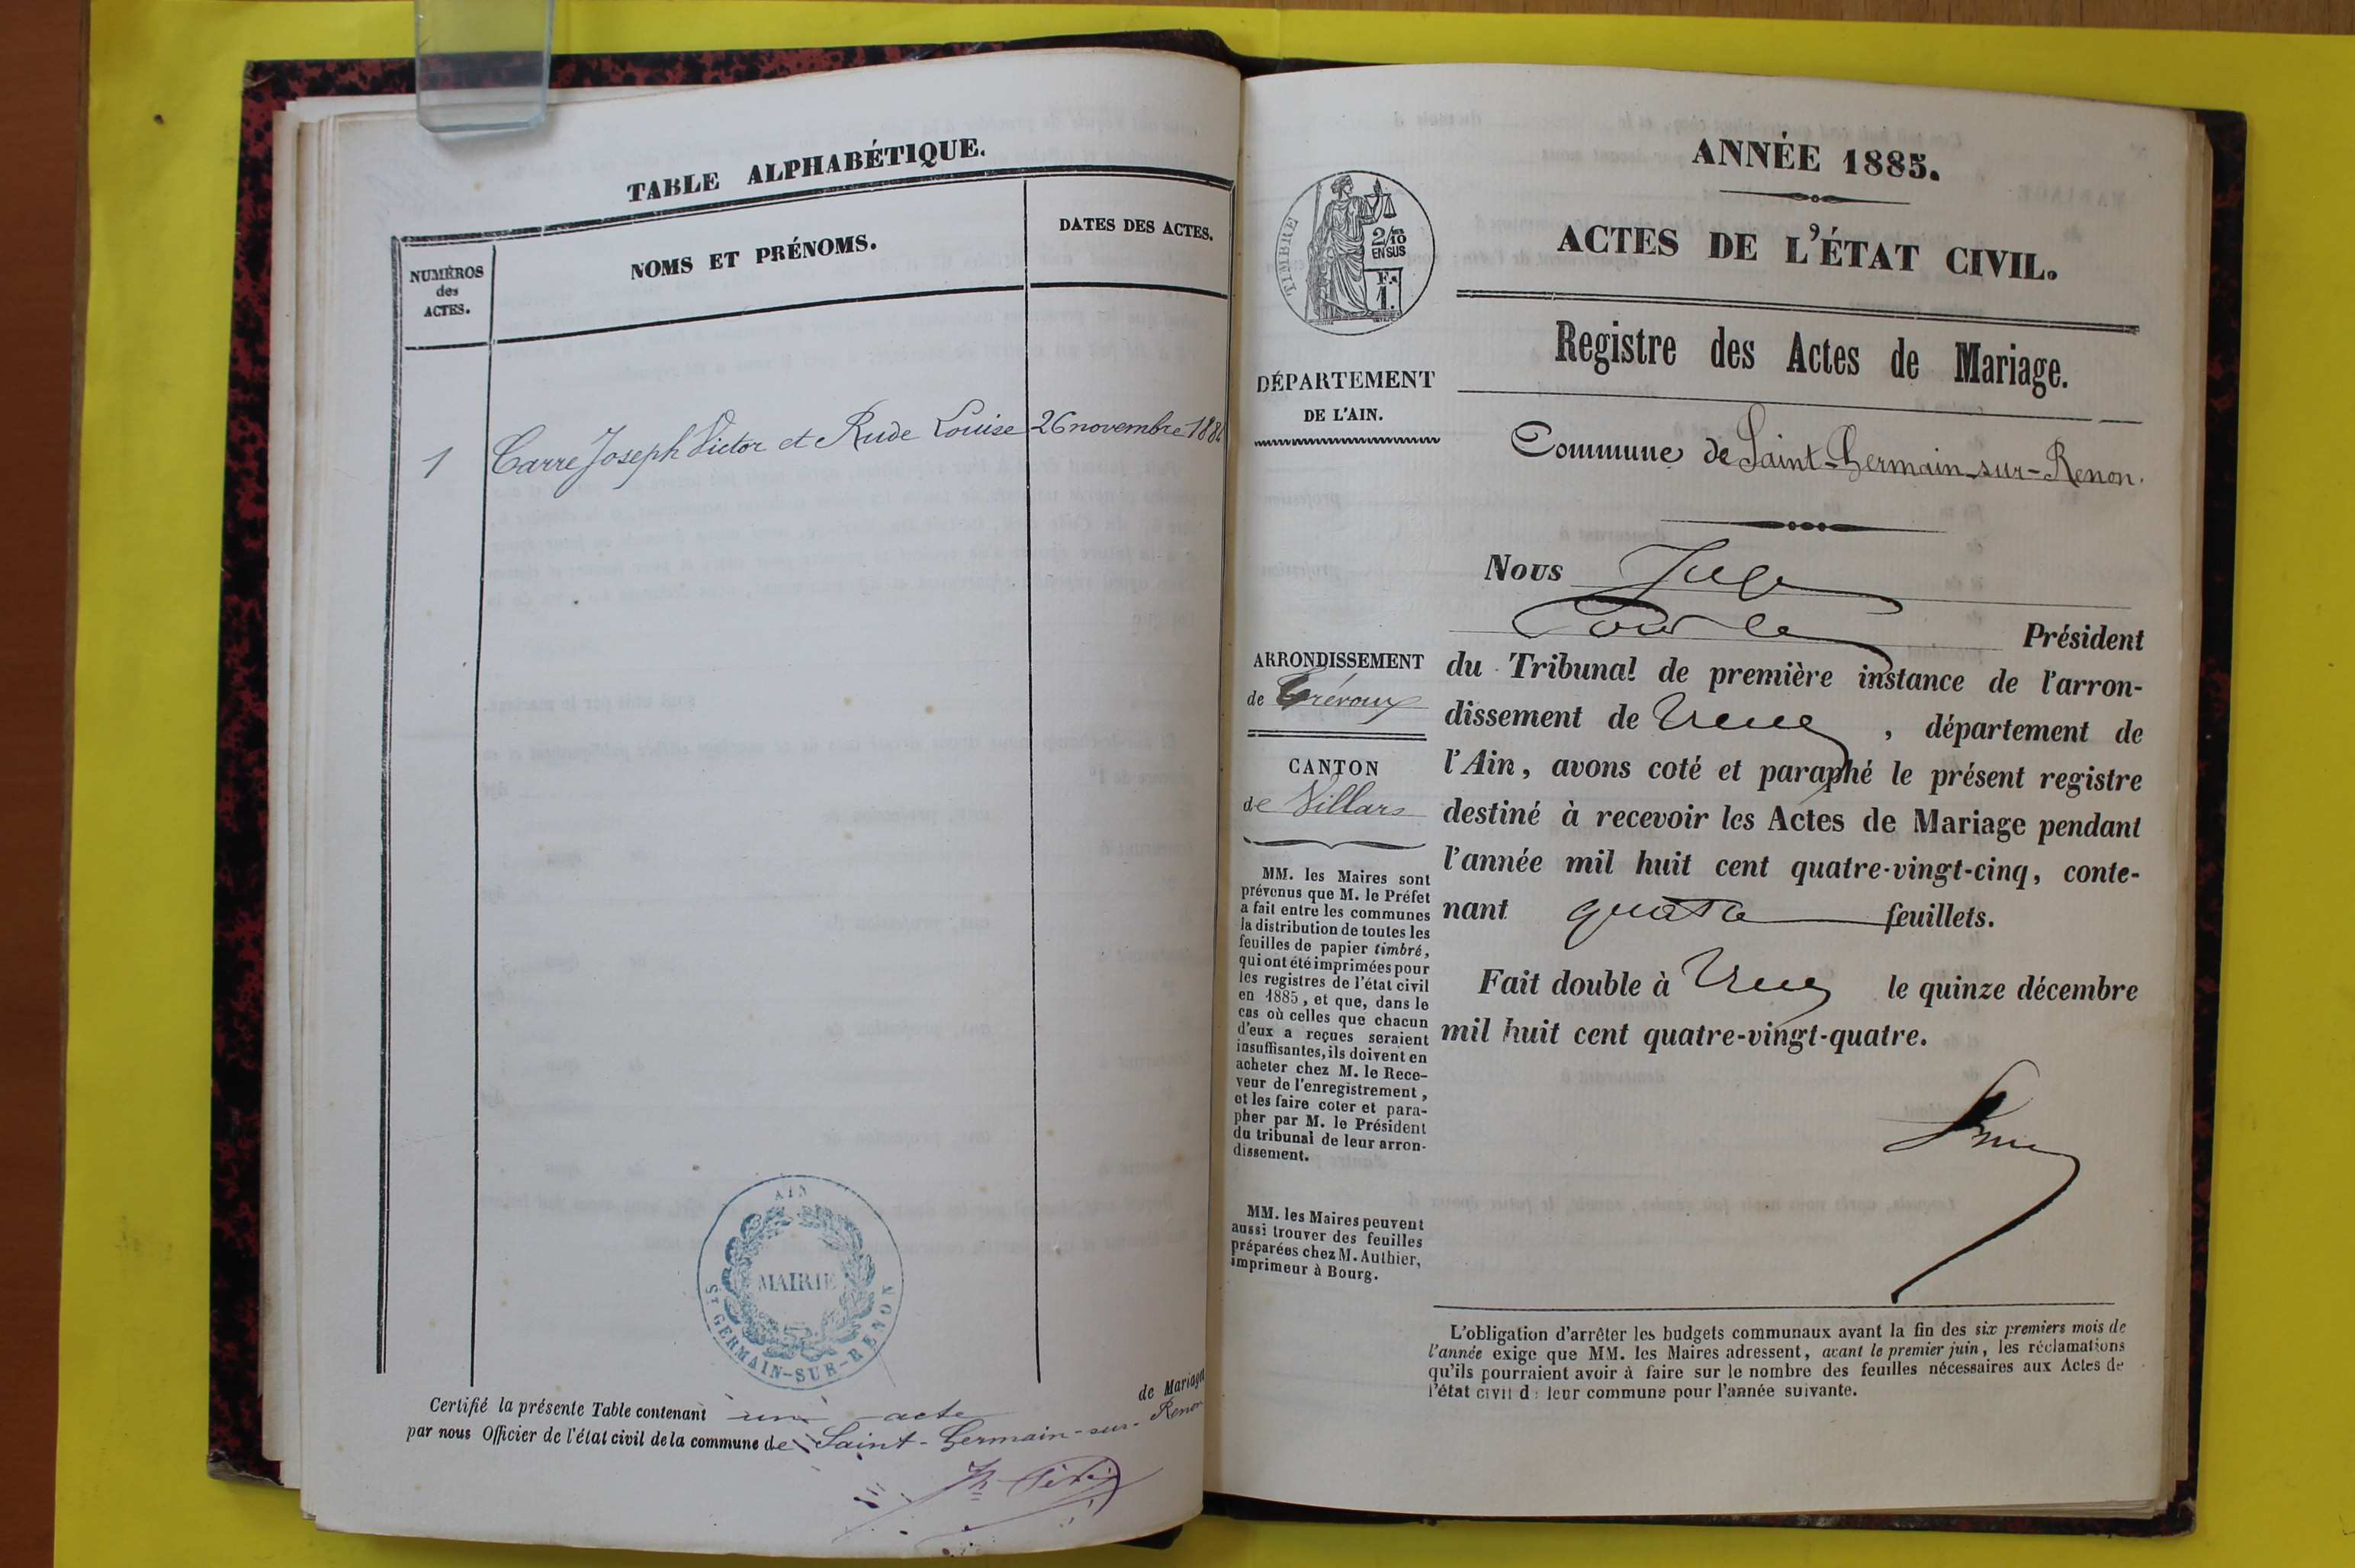 TABLE ALPHABÉTIQUE.
NUMÉROS
des
ACTES.
NOMS ET PRÉNOMS.
DATES DES ACTES.
1 Carre Joseph Victor et Rude Louise 26 novembre 188
AIN
MAIRIE
ST GERMAIN-SUR-RENON
Certifié la présente Table contenant un acte de Mariages
par nous Officier de l'état civil de la commune de Saint-Germain-sur-Renon
ANNÉE 1885.
ACTES DE L'ÉTAT CIVIL.
TIMBRE
2/10
EN SUS
1
Registre des Actes de Mariage.
DÉPARTEMENT
DE L'AIN.
Commune de Saint-Germain-sur-Renon.
ARRONDISSEMENT
de Trévoux
CANTON
de Villars
MM. les Maires sont
prévenus que M. le Préfet
a fait entre les communes
la distribution de toutes les
feuilles de papier timbré,
qui ont été imprimées pour
les registres de l'état civil
en 1885, et que, dans le
cas où celles que chacun
d'eux a reçues seraient
insuffisantes, ils doivent en
acheter chez M. le Rece-
veur de l'enregistrement,
et les faire coter et para-
pher par M. le Président
du tribunal de leur arron-
dissement.
MM. les Maires peuvent
aussi trouver des feuilles
préparées chez M. Authier,
imprimeur à Bourg.
Nous Juge
Pour le Président
du Tribunal de première instance de l'arron-
dissement de , département de
l'Ain, avons coté et paraphé le présent registre
destiné à recevoir les Actes de Mariage pendant
l'année mil huit cent quatre-vingt-cinq, conte-
nant quatre feuillets.
Fait double à le quinze décembre
mil huit cent quatre-vingt-quatre.
L'obligation d'arrêter les budgets communaux avant la fin des six premiers mois de
l'année exige que MM. les Maires adressent, avant le premier juin, les réclamations
qu'ils pourraient avoir à faire sur le nombre des feuilles nécessaires aux Actes de
l'état civil de leur commune pour l'année suivante.